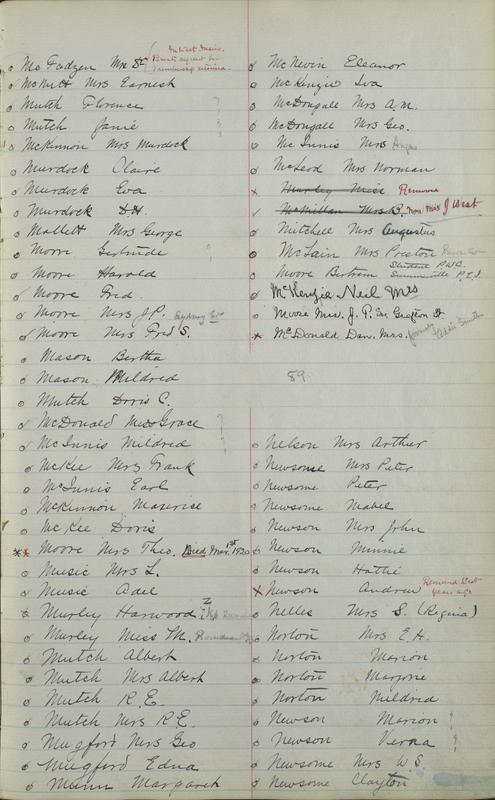 Mc Fadzen Mrs Dr
McNutt Mrs Earnest
Mutch Florence ?
Mutch Janie ?
McKinnon Mrs Murdock
Murdock Claire
Murdock Eva
Murdock D.H.
Mallett Mrs George
Moore Gertrude ?
Moore Harold
Moore Fred
Moore Mrs J.P. Sydney St
Moore Mrs Fred S.
Mason Bertha
Mason Mildred
Mutch Doris C.
McDonald Miss Grace ?
McInnis Mildred ?
McKee Mrs Frank
McInnis Earl
McKinnon Maurice
McKee Doris
Moore Mrs Theo. Died Mar. 1st 1920
Music Mrs L.
Music Adel
Murley Harwood ?
Murley Miss M.
Mutch Albert
Mutch Mrs Albert
Mutch R.E.
Mutch Mrs R.E.
Mugford Mrs Geo
Mugford Edna
Munn Margaret
McNevin Eleanor
McKenzie Iva
McDougall Mrs A.M.
McDougall Mrs Geo.
Mc Innis Mrs Angus
McLeod Mrs Norman
Murley Miss Remove
McMillan Mrs R. now Mrs J West
Mitchell Mrs Augustus
McLain Mrs Preston
Moore Bertram Student P.W.C. Summerside P.E.I.
McKenzie Neil Mrs
Moore Mrs. J. P. Grafton St
McDonald Dan. Mrs. formerly Addie Smith
89
Nelson Mrs Arthur
Newsome Mrs Peter
Newsome Peter
Newsome Mabel
Newson Mrs John
Newson Minnie
Newson Hattie
Newson Andrew Removed West years ago
Nelles Mrs S. (Regina)
Norton Mrs E.H.
Norton Marion
Norton Marjorie
Norton Mildred
Newson Marion ?
Newson Verna ?
Newsome Mrs W.S.
Newsome Clayton